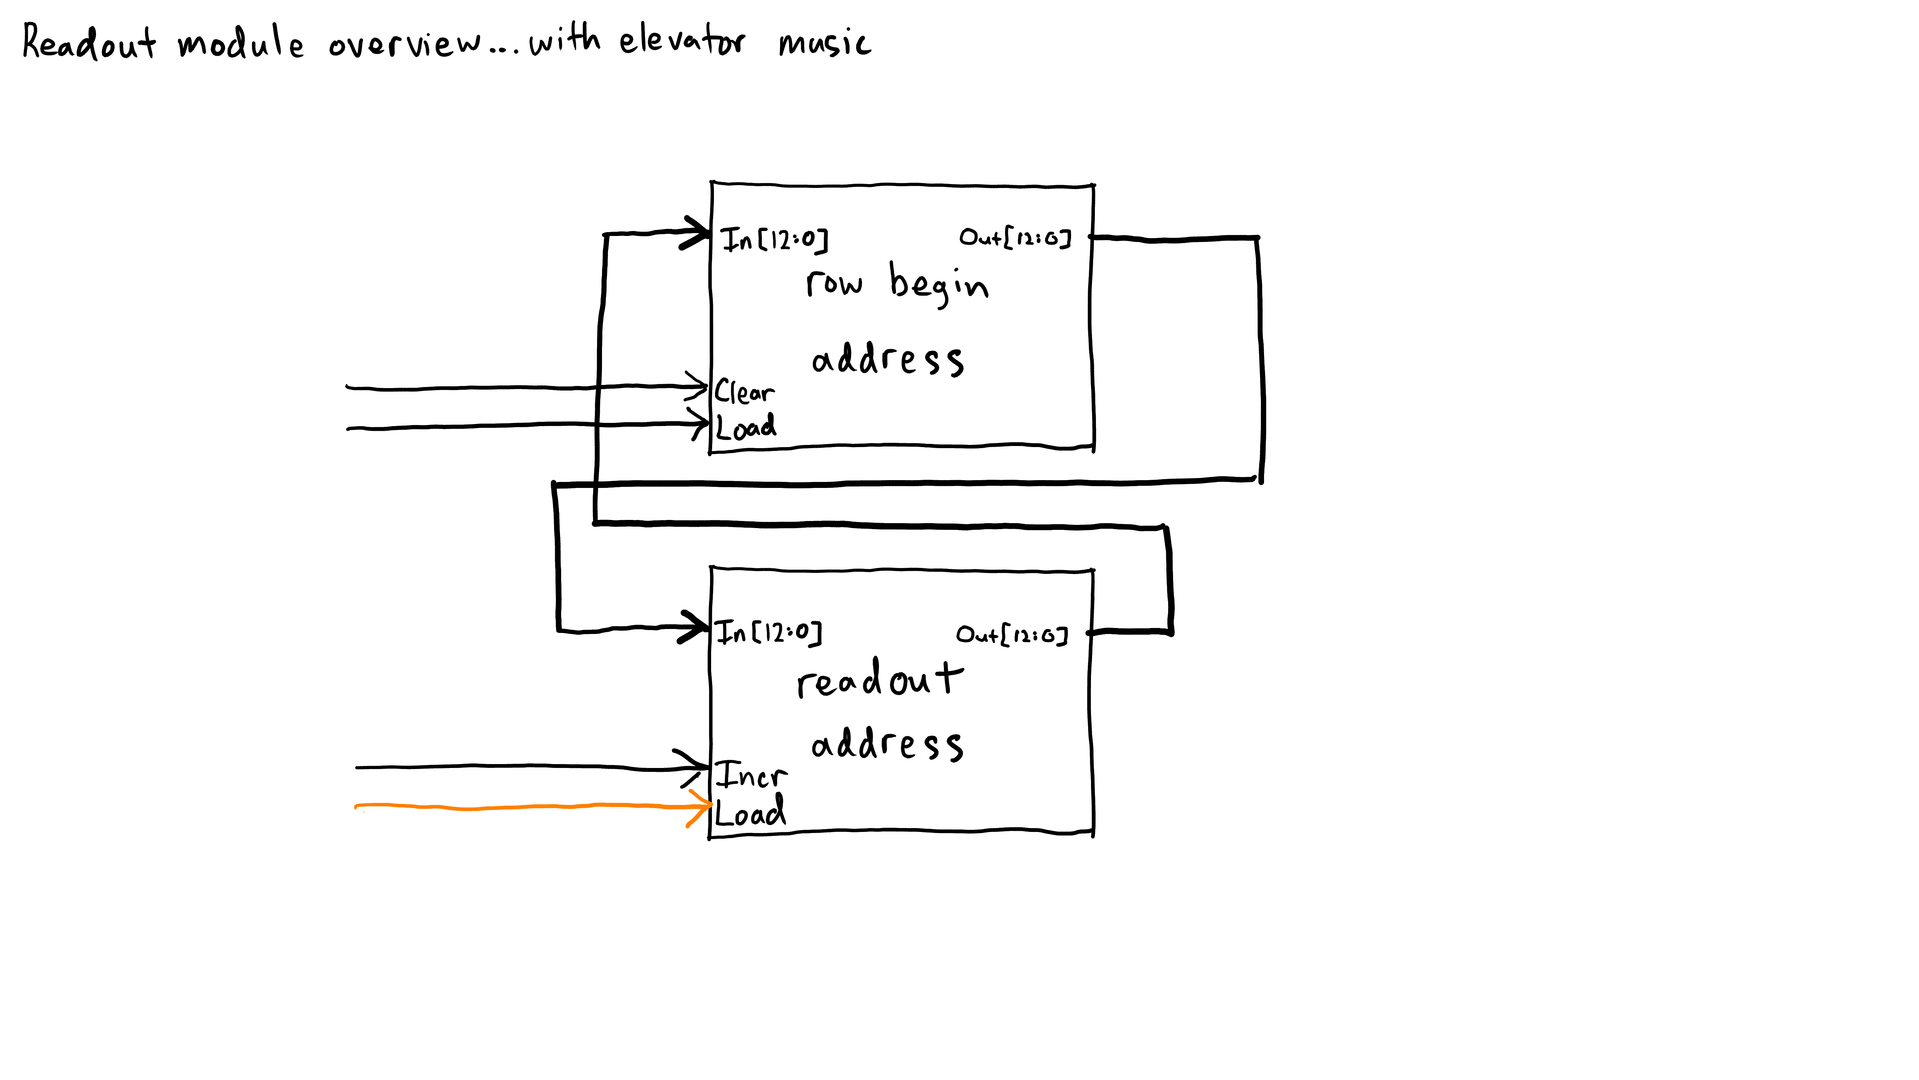 Readout module overview...with elevator music
In[12:0] Out[12:0]
row begin
address
Clear
Load
In[12:0] Out[12:0]
readout
address
Incr
Load